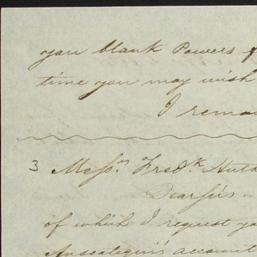 you blank Powers
time you may wish
I rema
3 Messrs. Fredk. Huta
Dear Sirs
of which I request yo
account